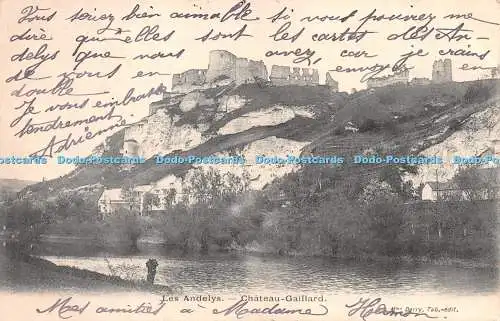 Vous seriez bien aimable si vous pouvez me
dire quelles sont les cartes des Andelys
que vous avez, car je crains
vous en envoyer en double
Je vous embrasse
tendrement
Adrienne
Dodo-Postcards Dodo-Postcards Dodo-Postcards Dodo-Postcards Dodo-Postcards
Les Andelys. — Château-Gaillard.
Mes amitiés à Madame Hamon
Mme Darry, Tab.-édit.